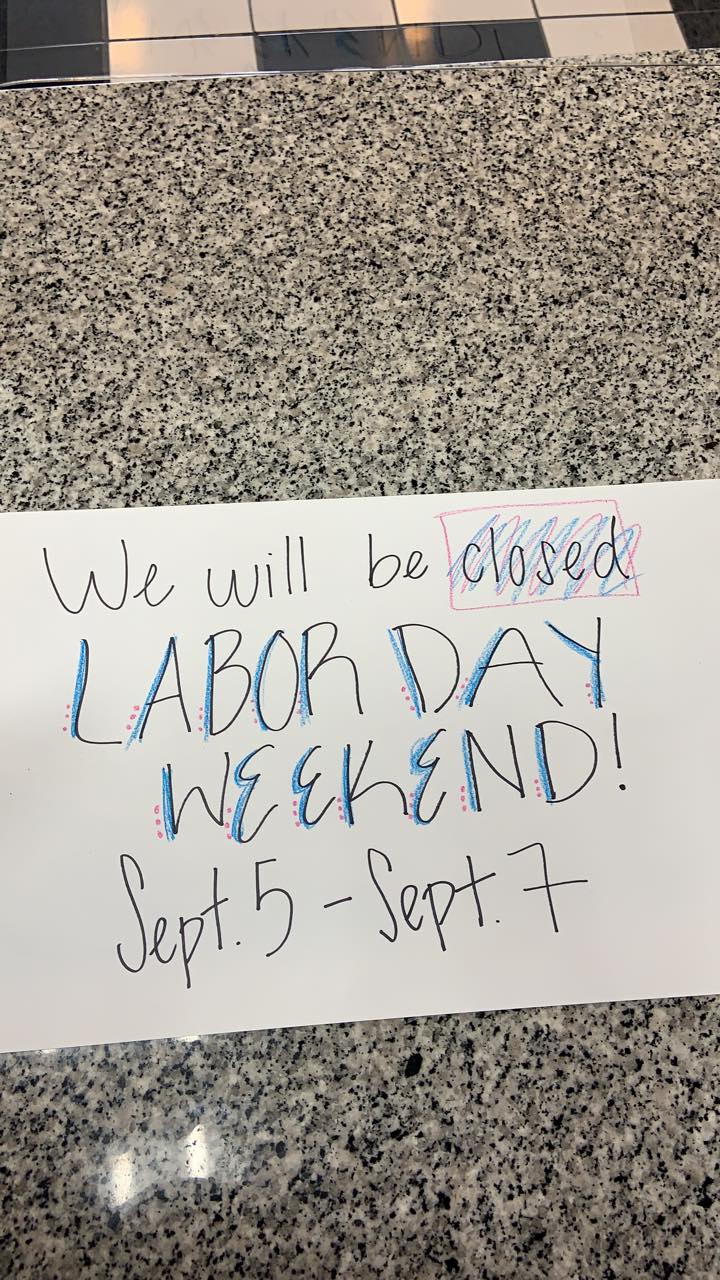 We will be closed
LABOR DAY
WEEKEND!
Sept. 5 - Sept. 7